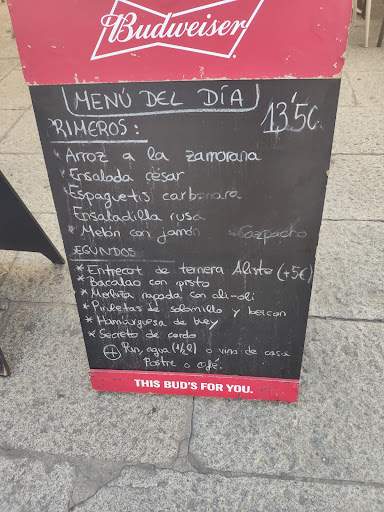 Budweiser
MENÚ DEL DÍA
13'5€
RIMEROS:
* Arroz a la zamorana
* Ensalada césar
* Espaguetis carbonara
Ensaladilla rusa
* Melón con jamón Gazpacho
EGUNDOS:
* Entrecot de ternera Alisto (+5€)
* Bacalao con pisto
* Merluza napada con ali-oli
* Piruletas de solomillo y beicon
* Hamburguesa de buey
* Secreto de cerdo
+ Pan, agua (1/2l) o vino de casa
Postre o café.
THIS BUD'S FOR YOU.